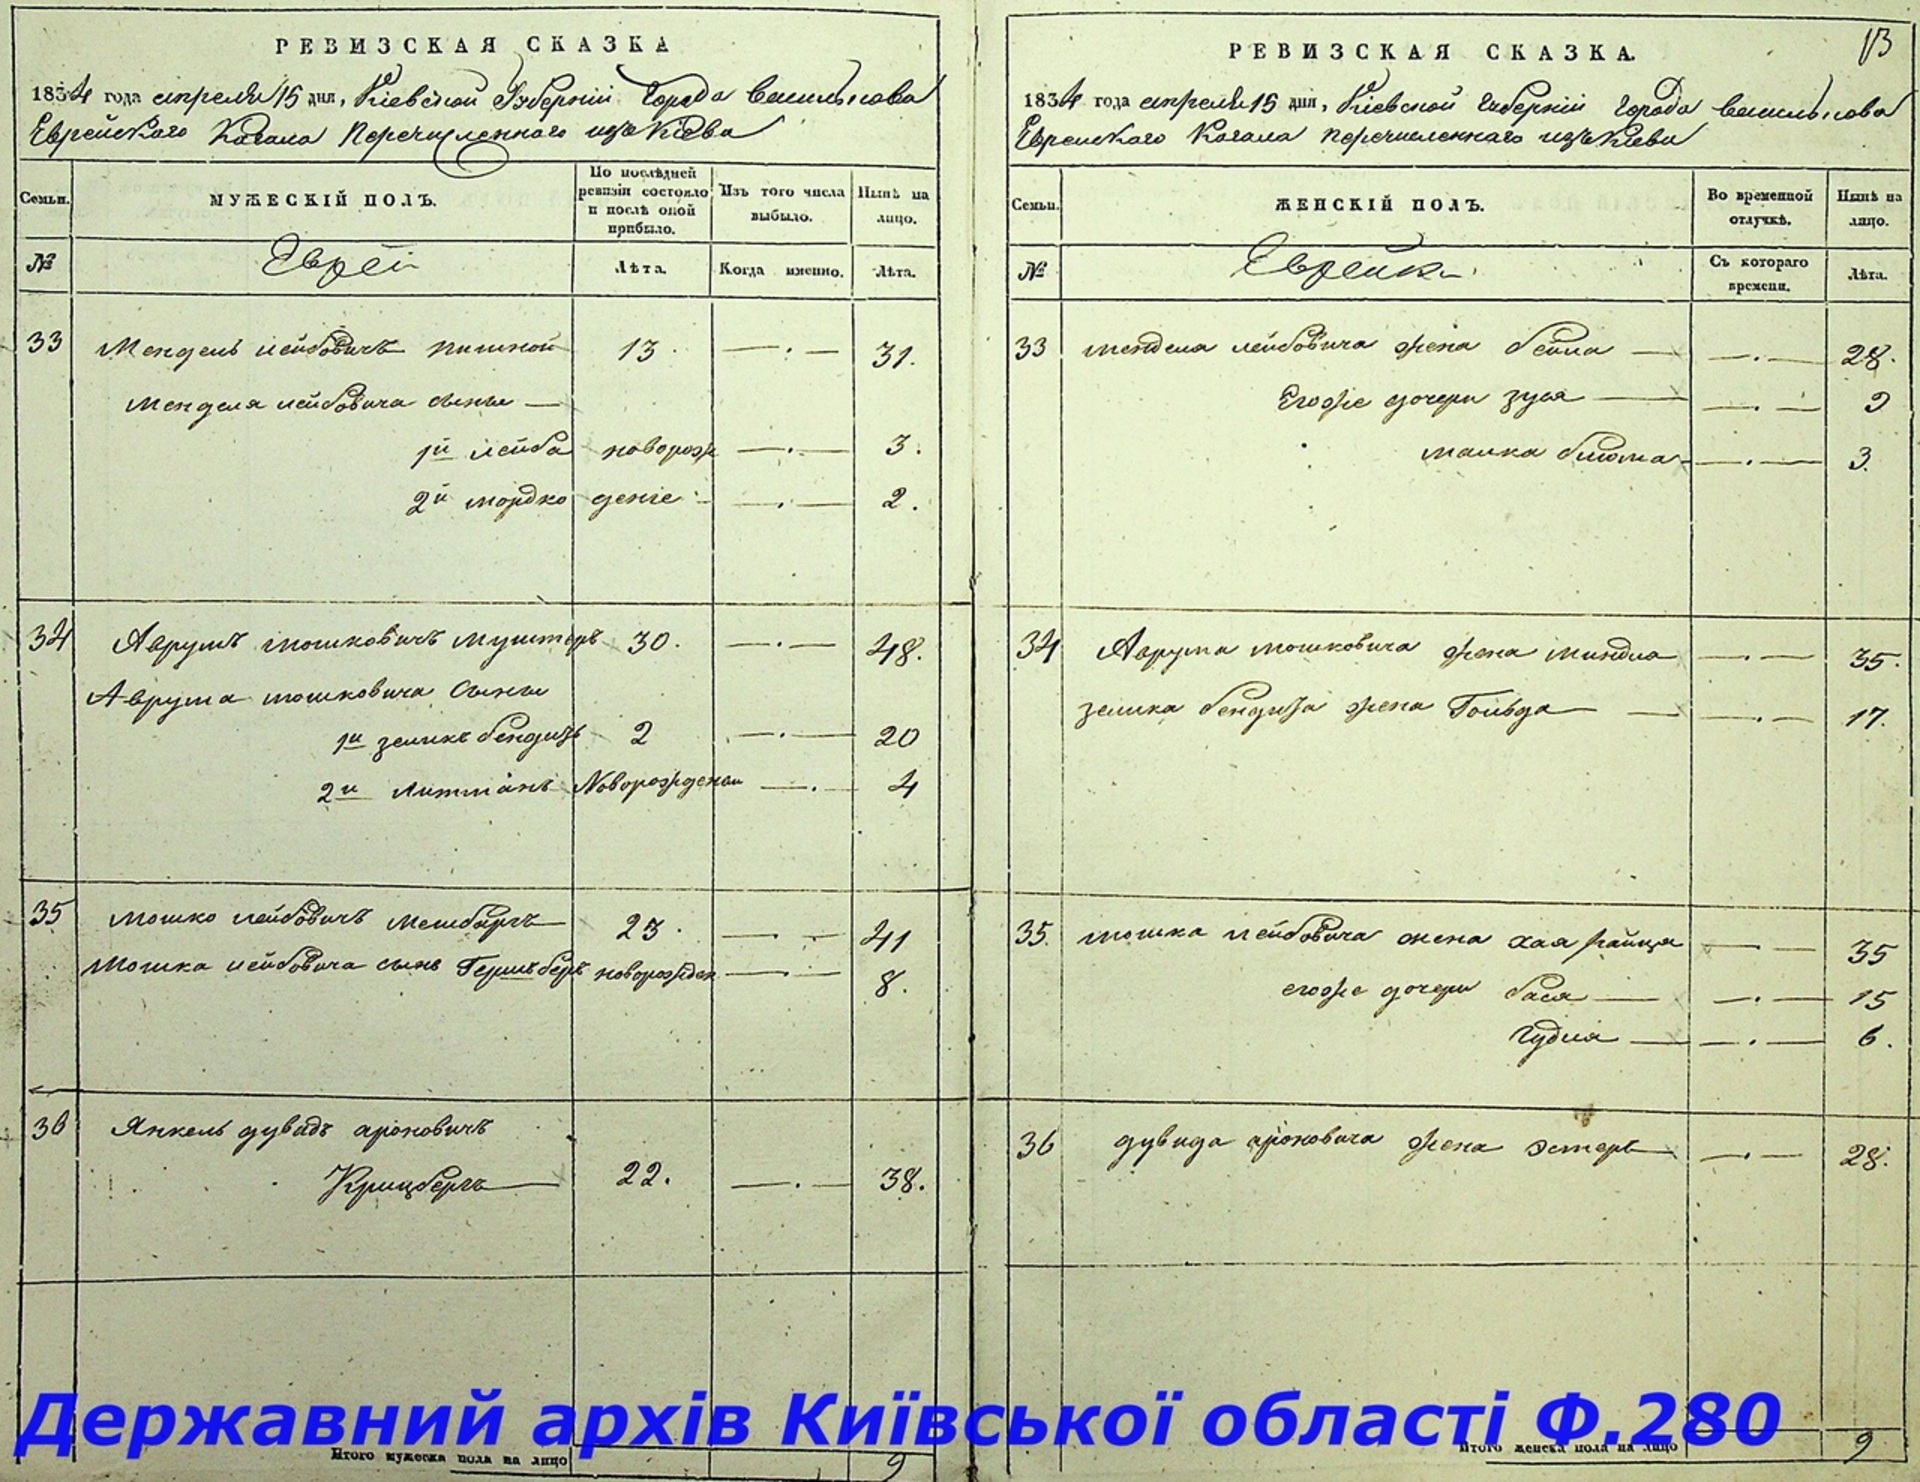 РЕВИЗСКАЯ СКАЗКА
1834 года апреля 15 дня, Кіевской Губерніи Города Василькова
Еврейскаго Кагала перечисленнаго изъ Кіева
Семьи.
МУЖЕСКІЙ ПОЛЪ.
По последней ревизіи состояло и послѣ оной прибыло.
Изъ того числа выбыло.
Нынѣ на лицо.
№
Еврей
Лѣта.
Когда именно.
Лѣта.
33 Мендель Лейбовичъ 13. 31.
Менделя Лейбовича сыны
1й Лейба новорож 3.
2й Мордко деніе 2.
34 Аврумъ Мошковичъ Муштеръ 30. 48.
Аврума Мошковича сыны
1й Зеликъ Бендитъ 2 20
2й Литманъ Новорожденъ 4
35 Мошко Лейбовичъ 23. 41
Мошка Лейбовича сынъ Гершъ Беръ новорожден 8.
36 Янкель Дувидъ Ароновичъ
Крицбергъ 22. 38.
Итого мужеска пола на лицо 9
РЕВИЗСКАЯ СКАЗКА.
13
1834 года апреля 15 дня, Кіевской Губерніи Города Василькова
Еврейскаго Кагала перечисленнаго изъ Кіева
Семьи.
ЖЕНСКІЙ ПОЛЪ.
Во временной отлучкѣ.
Нынѣ на лицо.
№
Еврейки
Съ котораго времени.
Лѣта.
33 Менделя Лейбовича жена Бейла 28.
Егоже дочери Зуся 9
Малка Блюма 3.
34 Аврума Мошковича жена Миндля 35.
Зелика Бендита жена Гольда 17.
35. Мошка Лейбовича жена Хая Райця 35
егоже дочери Бася 15
Гудля 6.
36 Дувида Ароновича жена Эстеръ 28.
Итого женска пола на лицо 9
Державний архів Київської області Ф.280